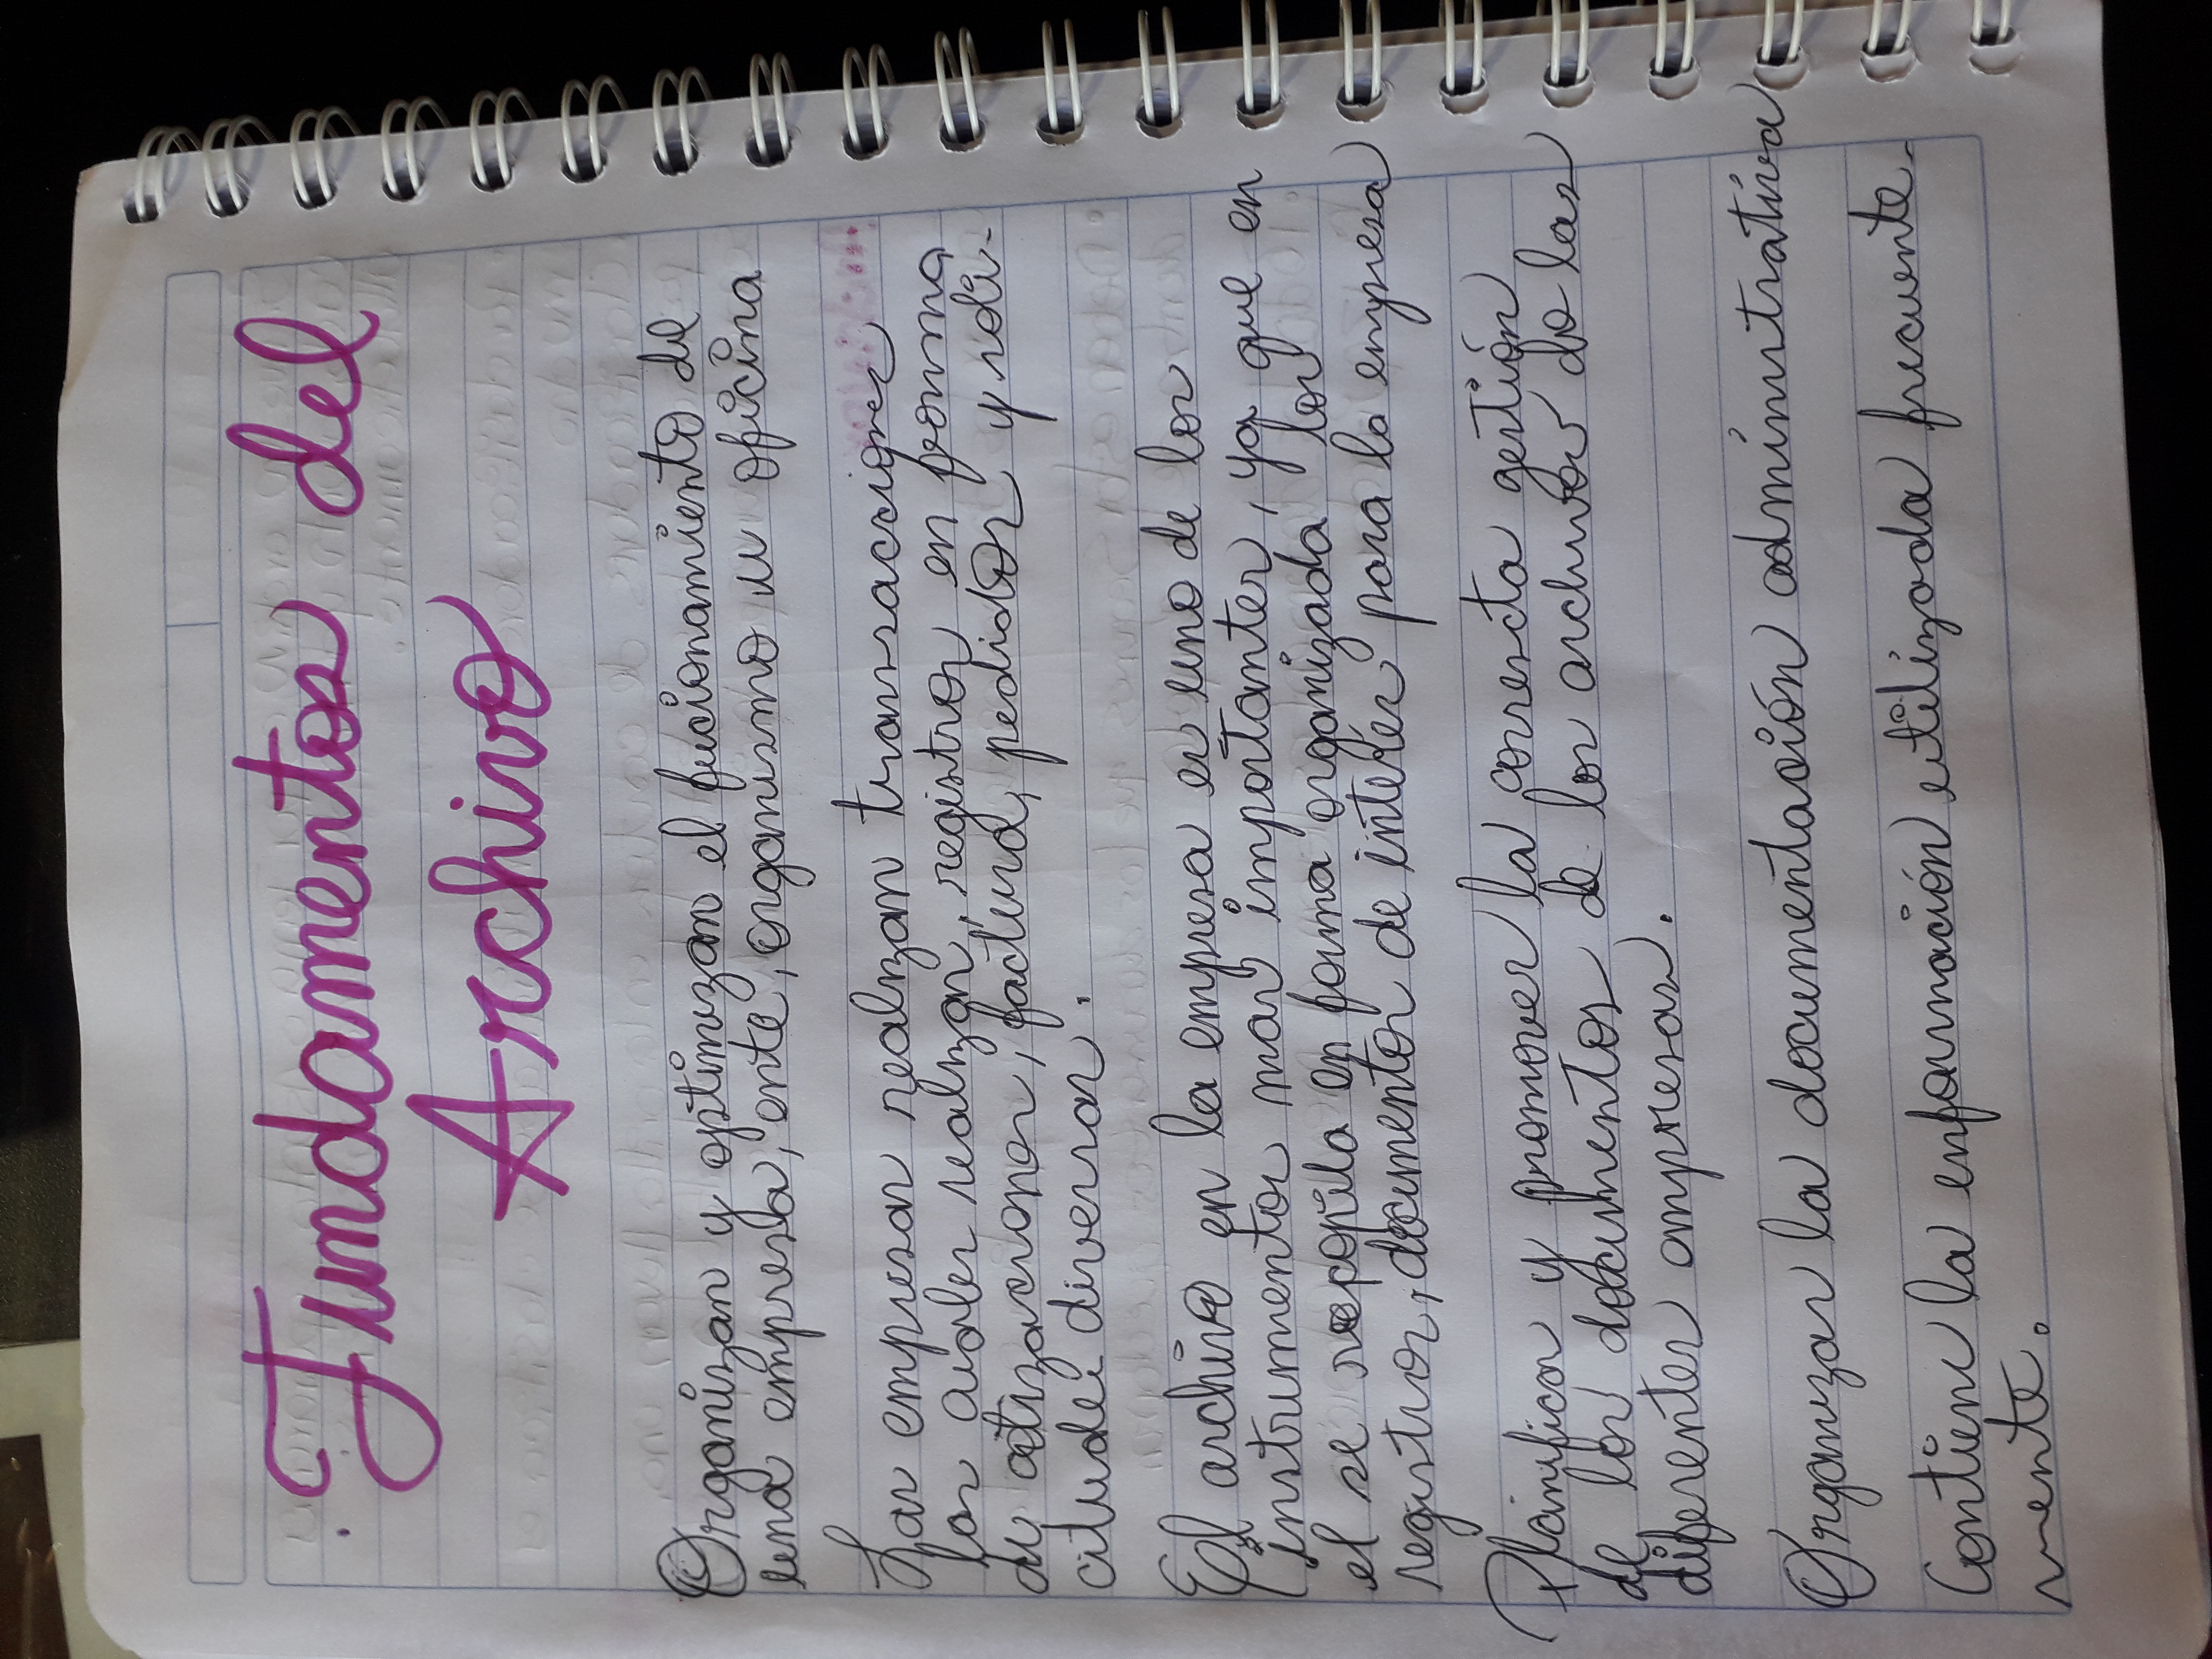 Fundamentos del
Archivo
Organizan y optimizan el fucionamiento de
una empresa, ente, organismo u oficina
Las empresas realizan transacciones
las cuales realizan, registros en forma
de cotizaciones, factura, pedidos y soli-
citudes diversas.
El archivo en la empresa es uno de los
instrumentos mas importantes, ya que en
el se recopila en forma organizada los
registros, documentos de interés para la empresa
Planificar y promover la correcta gestión
de los documentos de los archivos de las
diferentes empresas.
Organizar la documentación administrativa
Contiene la información utilizada frecuente-
mente.